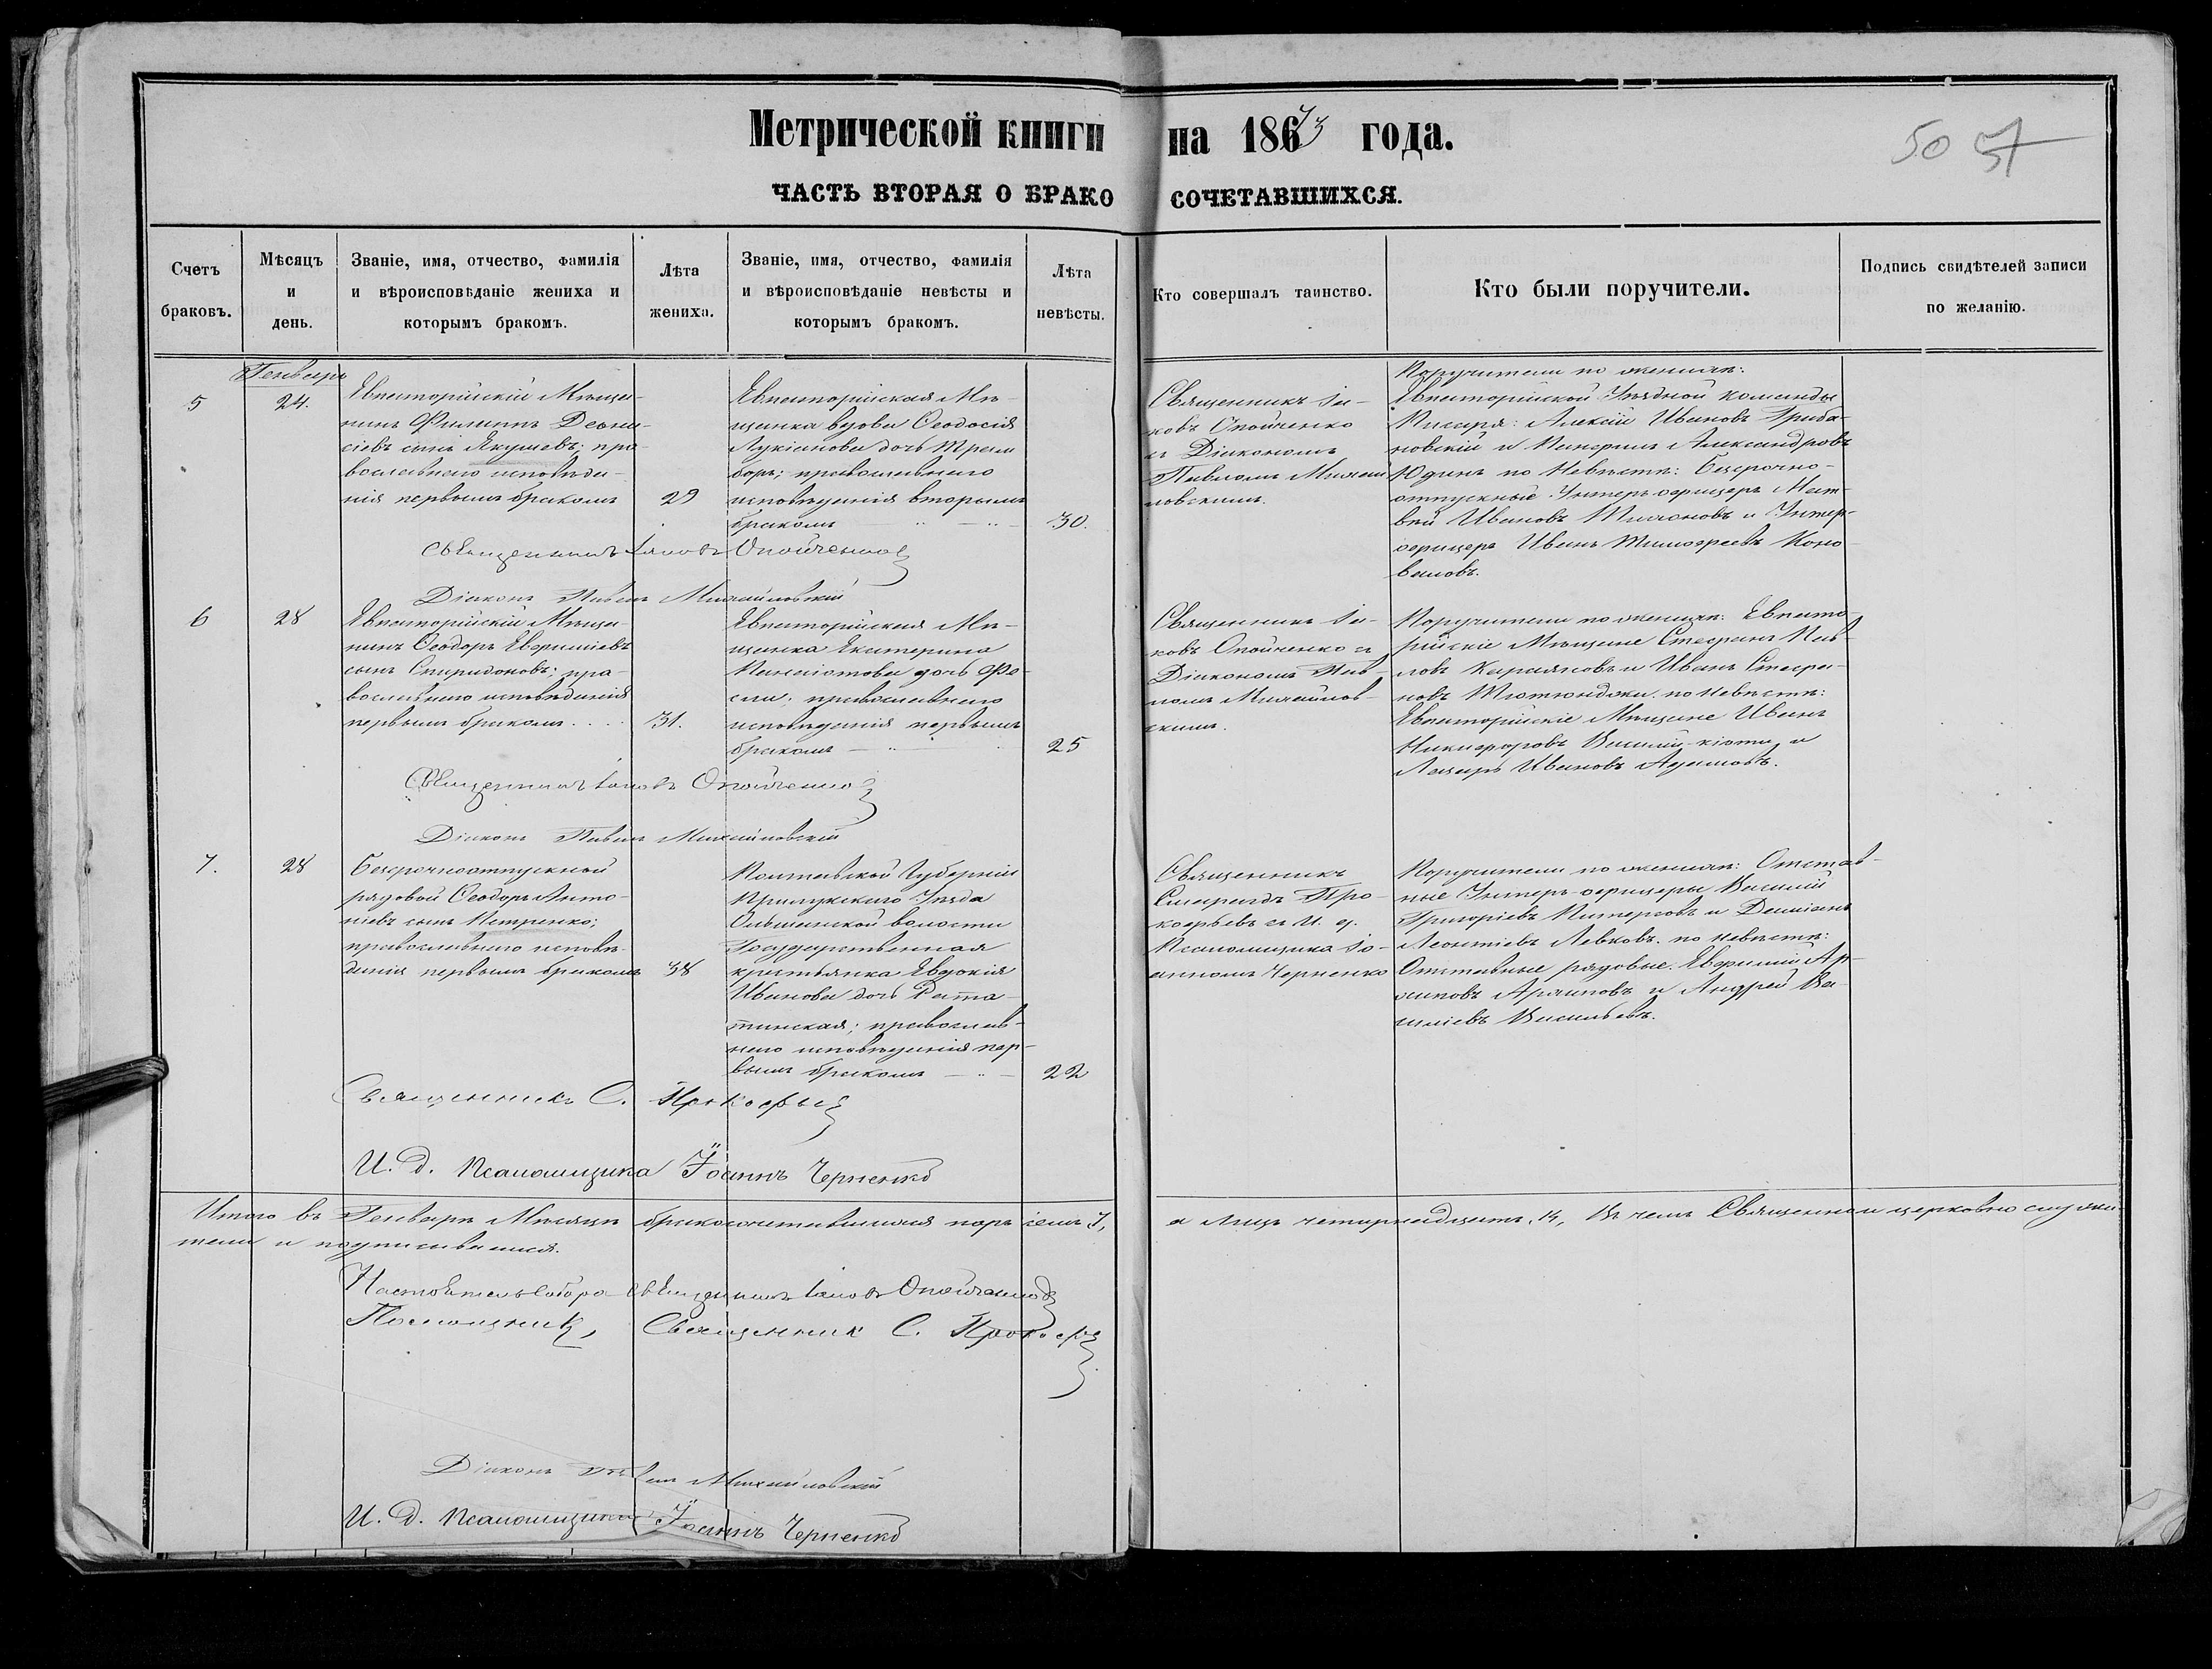 Метрической книги на 1873 года.
50 57
ЧАСТЬ ВТОРАЯ О БРАКО СОЧЕТАВШИХСЯ.
Счетъ браковъ.
Мѣсяцъ и день.
Званіе, имя, отчество, фамилія
и вѣроисповѣданіе жениха и
которымъ бракомъ.
Лѣта жениха.
Званіе, имя, отчество, фамилія
и вѣроисповѣданіе невѣсты и
которымъ бракомъ.
Лѣта невѣсты.
Кто совершалъ таинство.
Кто были поручители.
Подпись свидѣтелей записи
по желанію.
Генварь
5
24.
Евпаторійскій Мѣща-
нинъ Филиппъ Деони-
сіевъ сынъ Якушевъ; пра-
вославнаго исповѣда-
нія первымъ бракомъ
29
Евпаторійская Мѣ-
щанка вдова Ѳеодосія
Лукіанова дочь
православнаго
исповѣданія вторымъ
бракомъ
30.
Священникъ Іа-
ковъ Опойченко
съ Діакономъ
Павломъ Михай
ловскимъ.
Поручители по женихѣ:
Евпаторійской Уѣздной команды
Писаря: Алексій Ивановъ Гриба-
новскій и Александровъ
Юдинъ по Невѣстѣ: Безсрочно-
отпускные Унтеръ офицеръ Мат-
вѣй Ивановъ и Унтер-
офицеръ Иванъ Тимофеевъ Коно
валовъ.
Священникъ Іаковъ Опойченко
Діаконъ Павелъ Михайловскій
6
28
Евпаторійскій Мѣща-
нинъ Ѳеодоръ Евфиміевъ
сынъ Спиридоновъ; пра-
вославнаго исповѣданія
первымъ бракомъ
31.
Евпаторійская Мѣ-
щанка Екатерина
дочь
православнаго
исповѣданія первымъ
бракомъ
25
Священникъ Іа-
ковъ Опойченко съ
Діакономъ Пав-
ломъ Михайлов-
скимъ.
Поручители по женихѣ: Евпато-
рійскіе Мѣщане Стефанъ Пав-
ловъ и Иванъ Стефа-
новъ Тютюнджи. по Невѣстѣ:
Евпаторійскіе Мѣщане Иванъ
Никифоровъ и
Лазарь Ивановъ Адамовъ.
Священникъ Іаковъ Опойченко
Діаконъ Павелъ Михайловскій
7.
28
Безсрочноотпускной
рядовой Ѳеодоръ Анто-
ніевъ сынъ Петренко;
православнаго исповѣ-
данія первымъ бракомъ
38
Полтавской Губерніи
Прилукскаго Уѣзда
Ольшанской волости
Государственная
крестьянка Евдокія
Иванова дочь Рата-
тинская; православ-
наго исповѣданія пер-
вымъ бракомъ
22
Священникъ
Смарагдъ Про-
кофьевъ съ И. д.
Псаломщика Іо-
анномъ Черненко
Поручители по женихѣ: Отстав-
ные Унтеръ-офицеры Василій
Григоріевъ и Даміанъ
Леонтіевъ Левковъ. по невѣстѣ:
Отставные рядовые. Евфимій Ар-
хиповъ Архиповъ и Андрей Ва-
силіевъ Васильевъ.
Священникъ С. Прокофьевъ
И. д. Псаломщика Іоаннъ Черненко
Итого въ Генварѣ Мѣсяцѣ бракосочетавшихся паръ семь 7, а лицъ четырнадцать, 14, Въ чемъ Священно и церковно служи-
тели и подписываемся.
Настоятель Собора Священникъ Іаковъ Опойченко
Помощникъ, Священник С. Прокофьевъ
Діаконъ Павелъ Михайловскій
И. д. Псаломщика Іоаннъ Черненко